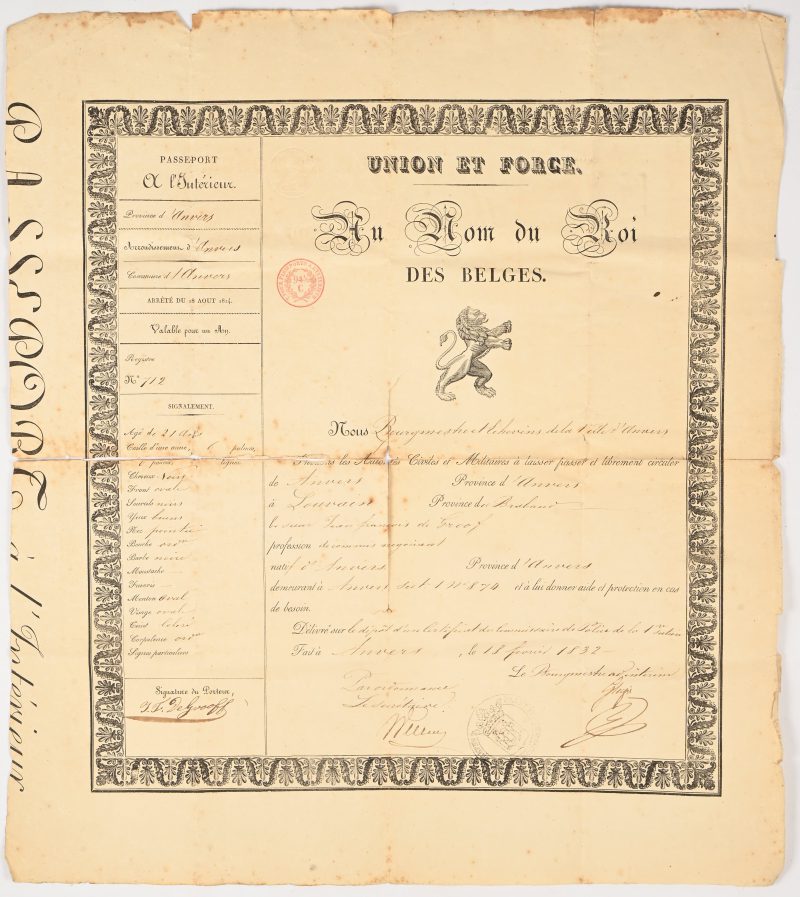 PASSEPORT à l'Intérieur
PASSEPORT
A l'Intérieur.
Province d'Anvers
Arrondissement d'Anvers
Commune d'Anvers
ARRÊTÉ DU 18 AOUT 1814.
Valable pour un An.
Registre
N° 712
SIGNALEMENT.
Agé de 21 ans
Taille d'une aune, 6 palmes,
pouces, lignes.
Cheveux noirs
Front ovale
Sourcils noirs
Yeux bruns
Nez pointu
Bouche moy
Barbe noire
Moustache
Favoris
Menton oval
Visage ovale
Teint coloré
Corpulence moy
Signes particuliers
Signature du Porteur,
J. F. De Grooff
UNION ET FORCE.
Au Nom du Roi
DES BELGES.
Nous Bourgmestre et Echevins de la Ville d'Anvers
Prions les Autorités Civiles et Militaires à laisser passer et librement circuler
de Anvers Province d'Anvers
à Louvain Province de Braband
le sieur Jean françois de Groof
profession de commis négociant
natif d'Anvers Province d'Anvers
demeurant à Anvers sect 1 N° 874 et à lui donner aide et protection en cas
de besoin.
Délivré sur le dépôt d'un certificat du Commissaire de Police de la 1re section
Fait à Anvers, le 18 février 1832
Le Bourgmestre ad interim
Par ordonnance
Le Secrétaire